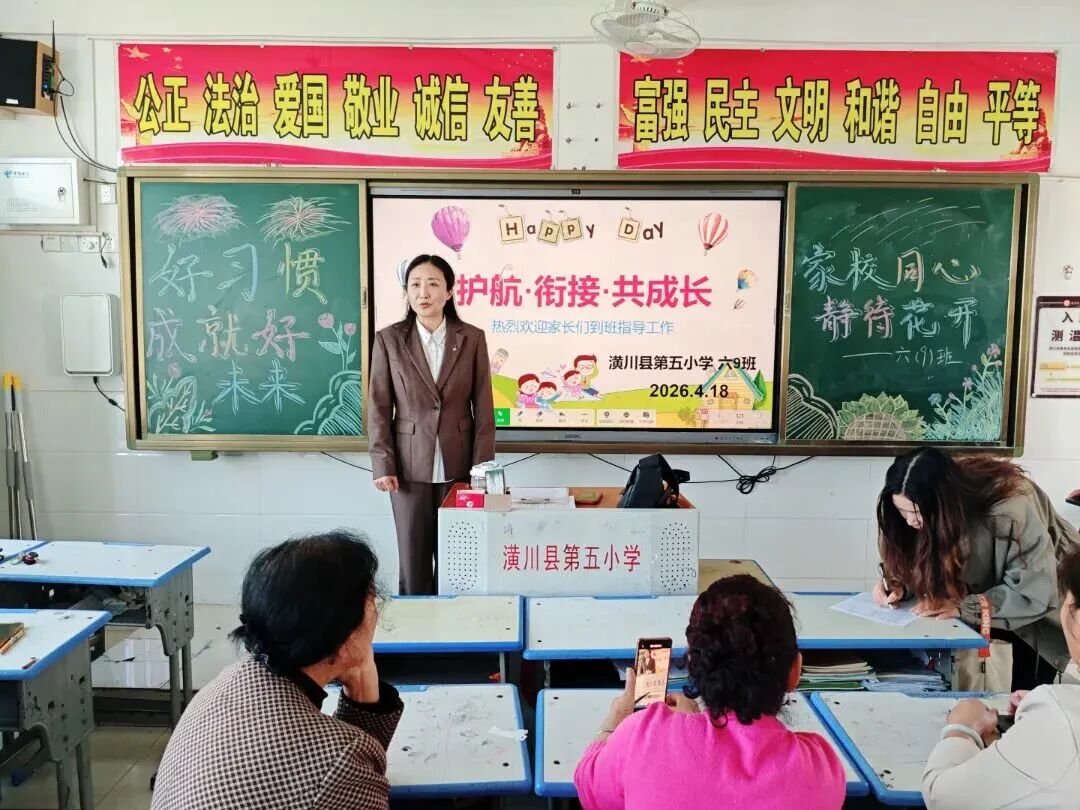 公正 法治 爱国 敬业 诚信 友善
富强 民主 文明 和谐 自由 平等
好习惯
成就好
未来
Happy Day
护航·衔接·共成长
热烈欢迎家长们到班指导工作
潢川县第五小学 六9班
2026.4.18
家校同心
静待花开
——六(9)班
潢川县第五小学
入
测温